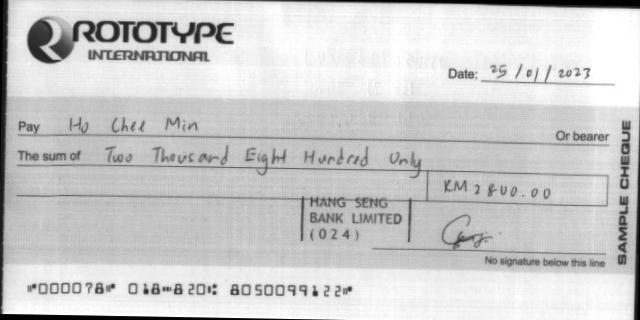 ROTOTYPE
INTERNATIONAL
Date: 25/01/2023
Pay Ho Chee Min
Or bearer
The sum of Two Thousand Eight Hundred Only
RM 2800.00
HANG SENG
BANK LIMITED
(024)
No signature below this line
SAMPLE CHEQUE
⑈000078⑈ 018⑉820⑆ 8050099122⑈